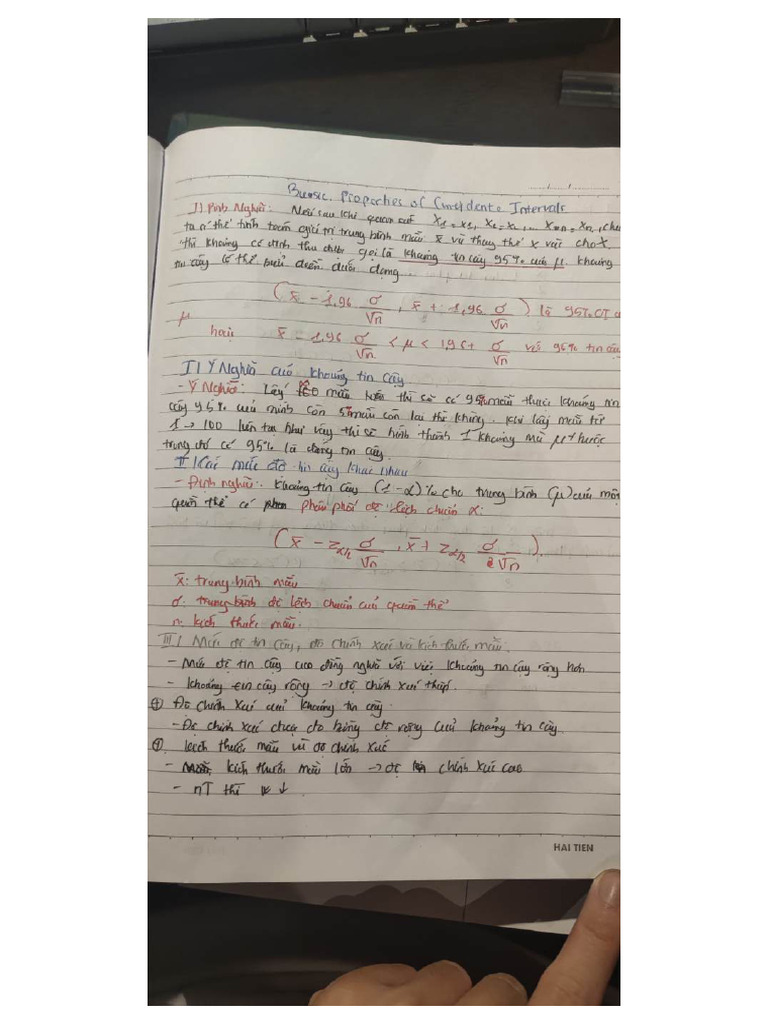 Buasic Propoches of Confidente Intervals
I) Định Nghĩa: Nếu sau khi quan sát X1 = x1, X2 = x2, ... Xn = xn, cho
ta có thể tính toán giá trị trung bình mẫu x̄ và thay thế x vào cho X
thì khoảng cố định thu được gọi là khoảng tin cậy 95% của μ. khoảng
tin cậy có thể biểu diễn dưới dạng
(x̄ - 1,96 σ/√n , x̄ + 1,96 σ/√n) là 95% CI
μ
hoặc x̄ - 1,96 σ/√n < μ < 1,96 + σ/√n với 95% tin cậy
II) Ý Nghĩa của khoảng tin cậy
- Ý Nghĩa: Lấy 100 mẫu thì sẽ có 95 mẫu thuộc khoảng tin
cậy 95% của mình còn 5 mẫu còn lại thì không. khi lấy mẫu từ
1 → 100 lần như vậy thì sẽ hình thành 1 khoảng mà μ thuộc
trong đó có 95% là đáng tin cậy.
II) Các mức độ tin cậy khác nhau
- Định nghĩa: khoảng tin cậy (1-α)% cho trung bình (μ) của một
quần thể có phân phối độ lệch chuẩn α:
(x̄ - zα/2 σ/√n , x̄ + zα/2 σ/√n).
x̄: trung bình mẫu
σ: trung bình độ lệch chuẩn của quần thể
n: kích thước mẫu.
III) Mức độ tin cậy, độ chính xác và kích thước mẫu.
- Mức độ tin cậy cao đồng nghĩa với việc khoảng tin cậy rộng hơn
- khoảng tin cậy rộng → độ chính xác thấp.
⊕ Độ chính xác của khoảng tin cậy
- Độ chính xác được đo bằng độ rộng của khoảng tin cậy
⊕ kích thước mẫu và độ chính xác
- kích thước mẫu lớn → độ chính xác cao
- n↑ thì w ↓
HAI TIEN